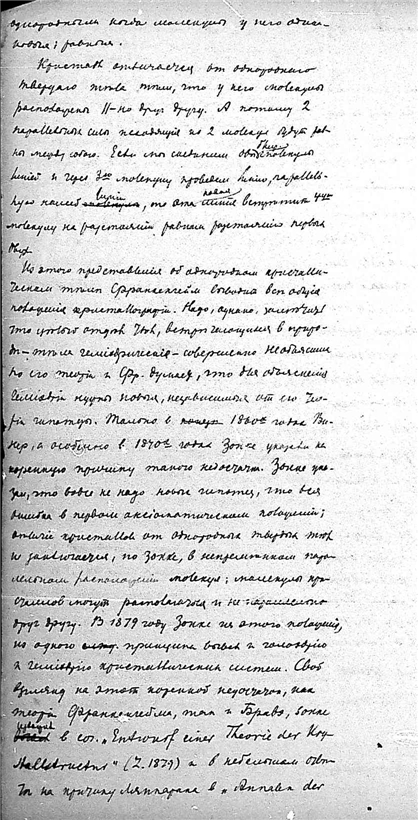 однородными когда молекулы у него один-
ковыя; равныя.
Кристалл отличается от однороднаго
твердаго тѣла тѣмъ, что у него молекулы
расположены ||-но другъ другу. А потому 2
параллельныя силы исходящія из 2 молекул будут рав-
ны между собою. Если мы соединим обѣ молекулы
линіей и через 3ью молекулу проведем линію, параллель-
ную нашей линіи, то эта новая встрѣтит 4ую
молекулу на разстояніи равном разстоянію первых
двух.
Из этого представленія об однородном кристалли-
ческом тѣлѣ Франкенгейм выводит всѣ общія
положенія кристаллографіи. Надо, однако, замѣтить
что цѣлый отдѣл тѣл, встрѣчающихся в приро-
дѣ – тѣла геміэдрическія – совершенно необъясним
по его теоріи и Фр. думает, что для объясненія
геміэдріи нужны новыя, независимыя от его тео-
ріи гипотезы. Только в 1860ых годах Ви-
нер, а особенно в 1870ых годах Зонке указали на
коренную причину такого недостатка. Зонке ука-
зал, что вовсе не надо новых гипотез, что вся
ошибка в первом аксіоматическом положеніи;
отличіе кристаллов от однородных твердых тѣл
не заключается, по Зонке, в непремѣнном пара-
лельном расположеніи молекул; молекулы кри-
сталлов могут располагаться и не параллельно
друг другу. В 1879 году Зонке из этого положенія,
из одного принципа вывел и голоэдрію
и геміэдрію кристаллических систем. Свой
взгляд на этот коренной недостаток, как
теоріи Франкенгейма, так и Браве, Зонке
в соч. „Entwurf einer Theorie der Kry-
stallstructur" (L. 1879) и в небольшом отвѣ-
тѣ на критику в „Annalen der